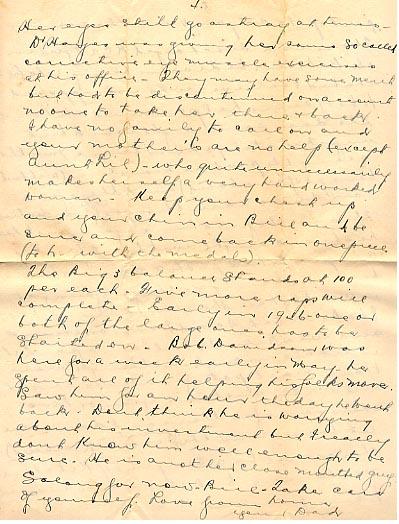 Her eyes still go astray at times -
Dr Hayes was giving her some so called
corrective eye muscle exercises
at his office - They may have some merit
but had to be discontinued on account
no one to take her there & back.
I have no family to call on and
your mother's are no help (except
Aunt Lil) - who quite unnecessarily
makes herself a very hard worked
woman. Keep your chest up
and your chin in Bill and be
sure and come back in one piece
(to h- with the medals).
The Big 3 balance stands at 100
per each. Five more raps will
complete. Early in 1946 one or
both of the large ones has to be
started on. Bob Davidson was
here for a week early in May. he
spent all of it helping his folks move.
Saw him for an hour the day he went
back. Don't think he is worrying
about his investment but I really
don't know him well enough to be
sure. He is another close mouthed guy.
So long for now - Bill - Take care
of yourself. Love from home
your Dad